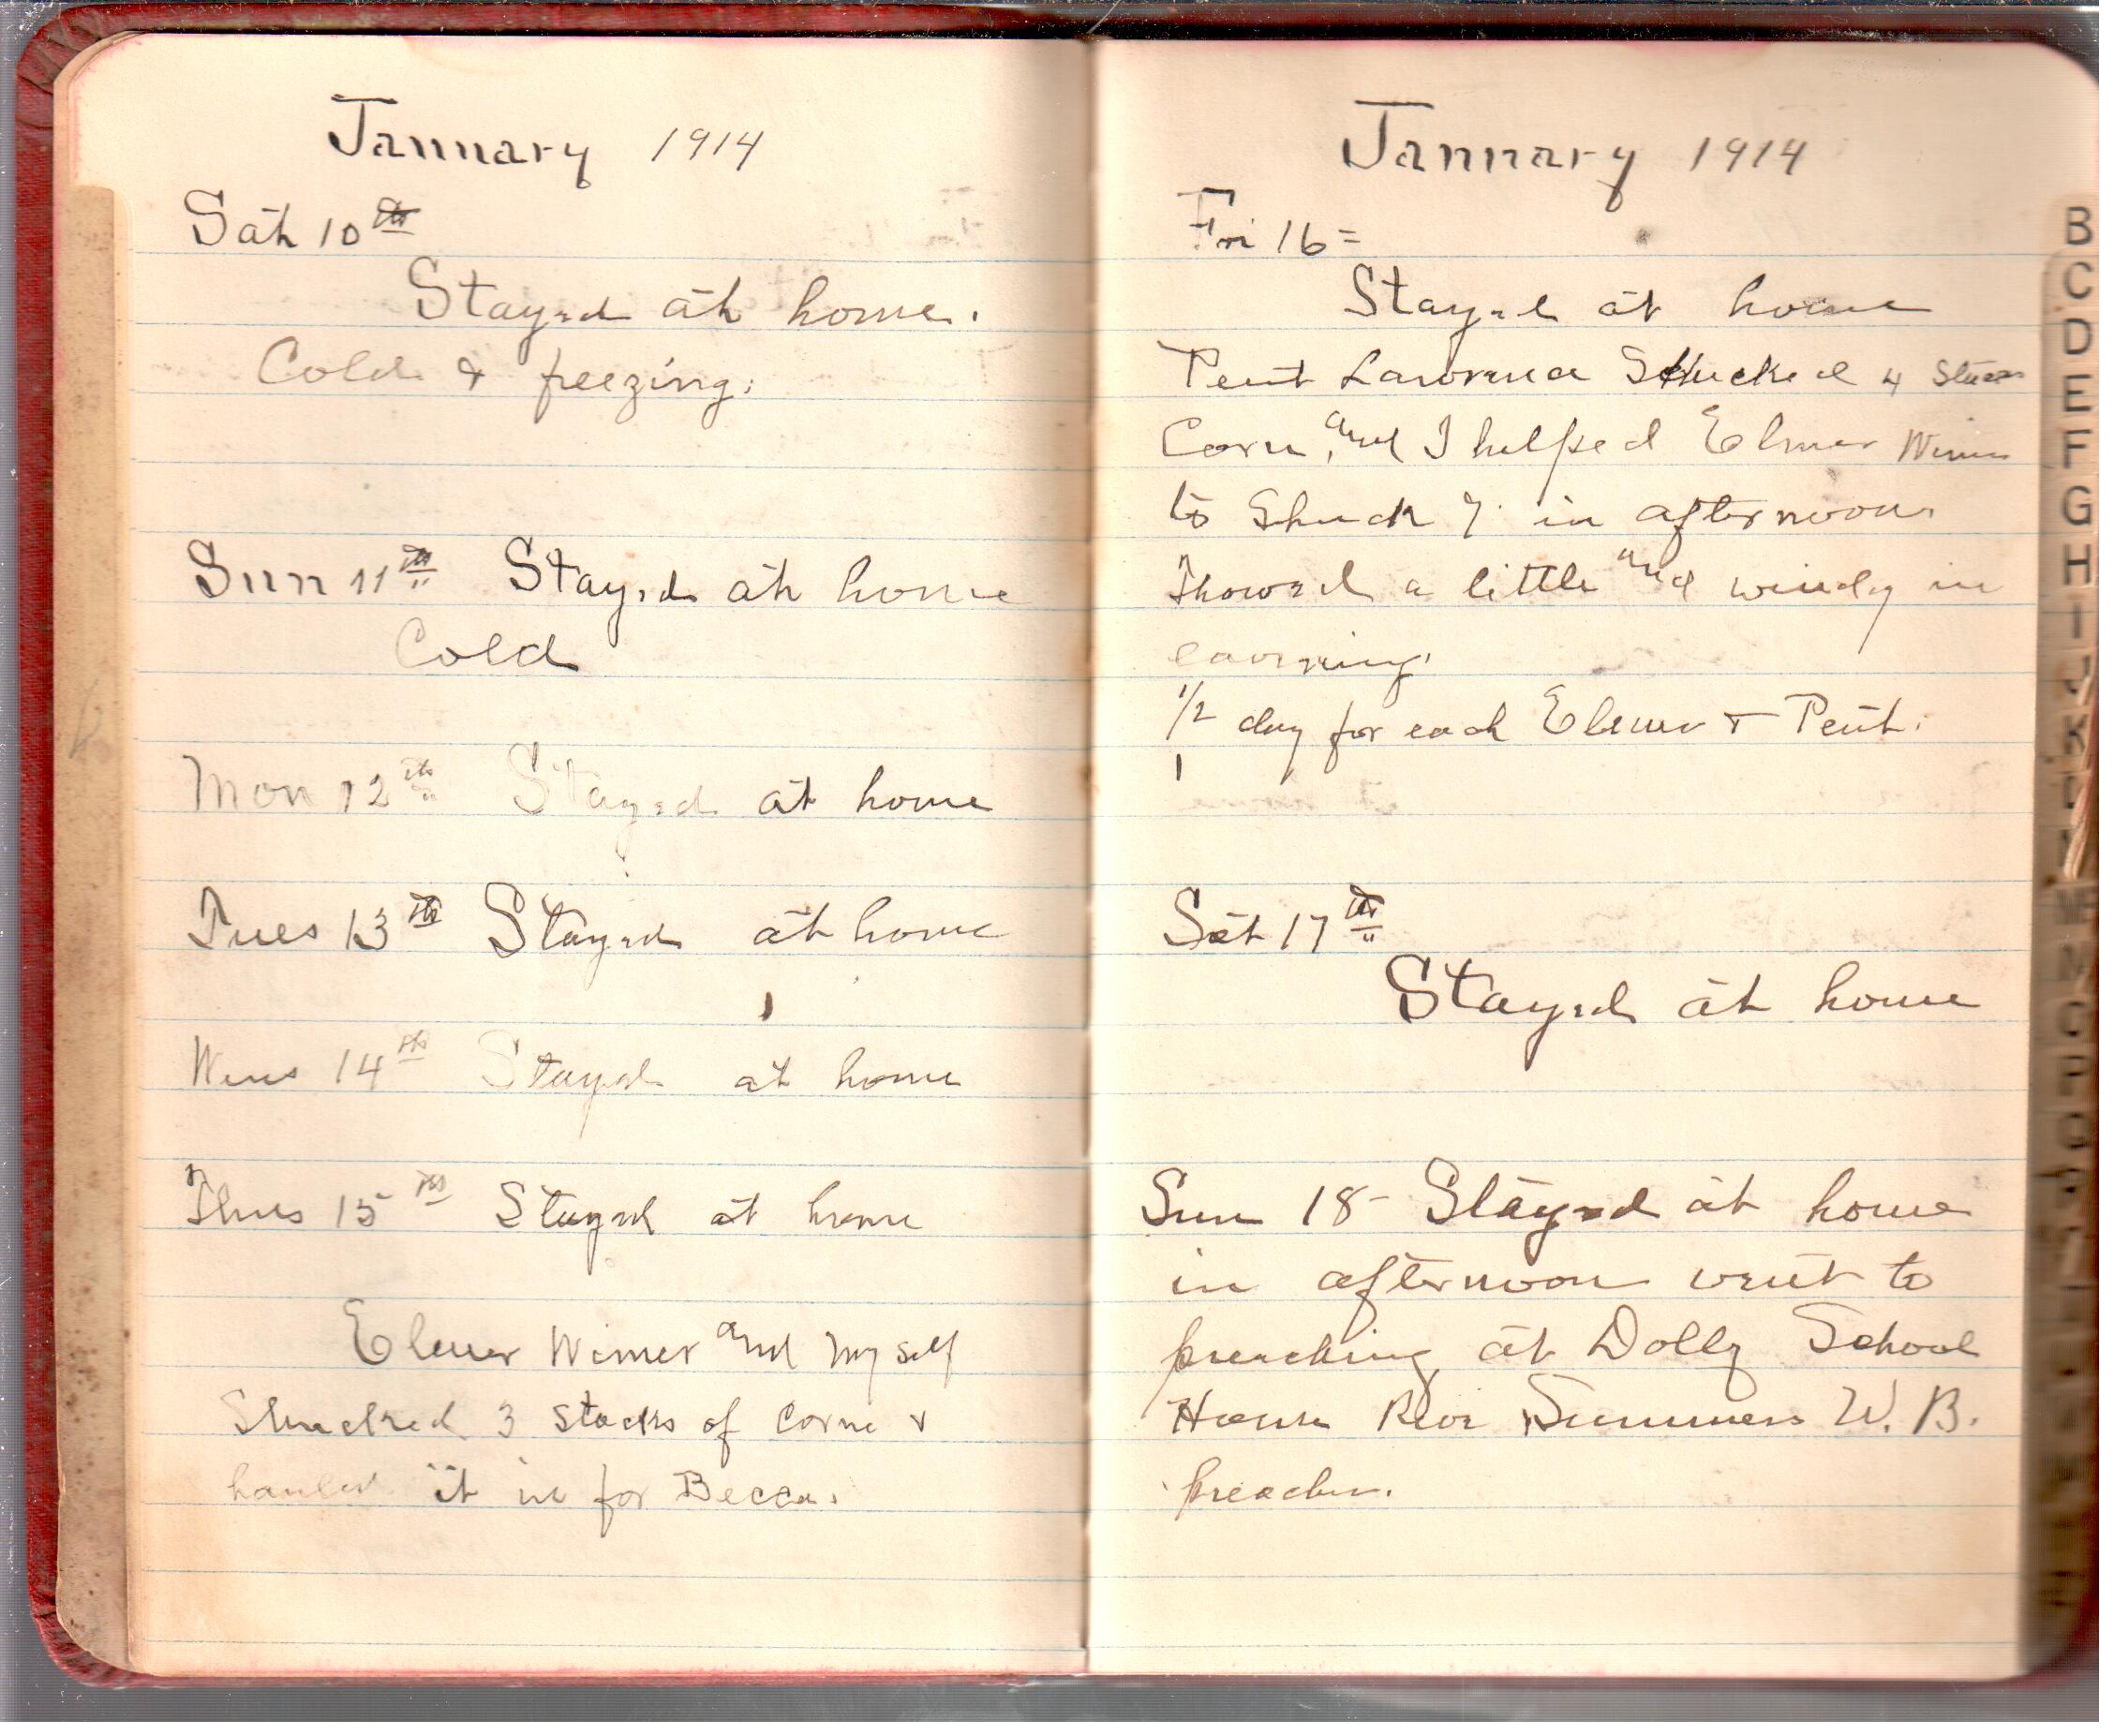 January 1914
Sat 10th
Stayed at home.
Cold & freezing.
Sun 11th Stayed at home
Cold
Mon 12th Stayed at home
Tues 13th Stayed at home
Wens 14th Stayed at home
Thus 15th Stayed at home
Elmer Wimer and my self
Shucked 3 stacks of corne &
hauled it in for Becca.
January 1914
Fri 16
Stayed at home
Pent Lawrence Shucked 4
Corn, and I helped Elmer Wimer
to Shuck 7 in afternoon
Snowed a little and windy in
eavening.
1/2 day for each Elmer & Pent.
Sat 17th
Stayed at home
Sun 18 - Stayed at home
in afternoon went to
preaching at Dolly School
House Summers U. B.
preacher.
B
C
D
E
F
G
H
I
J
K
L
M
N
O
P
Q